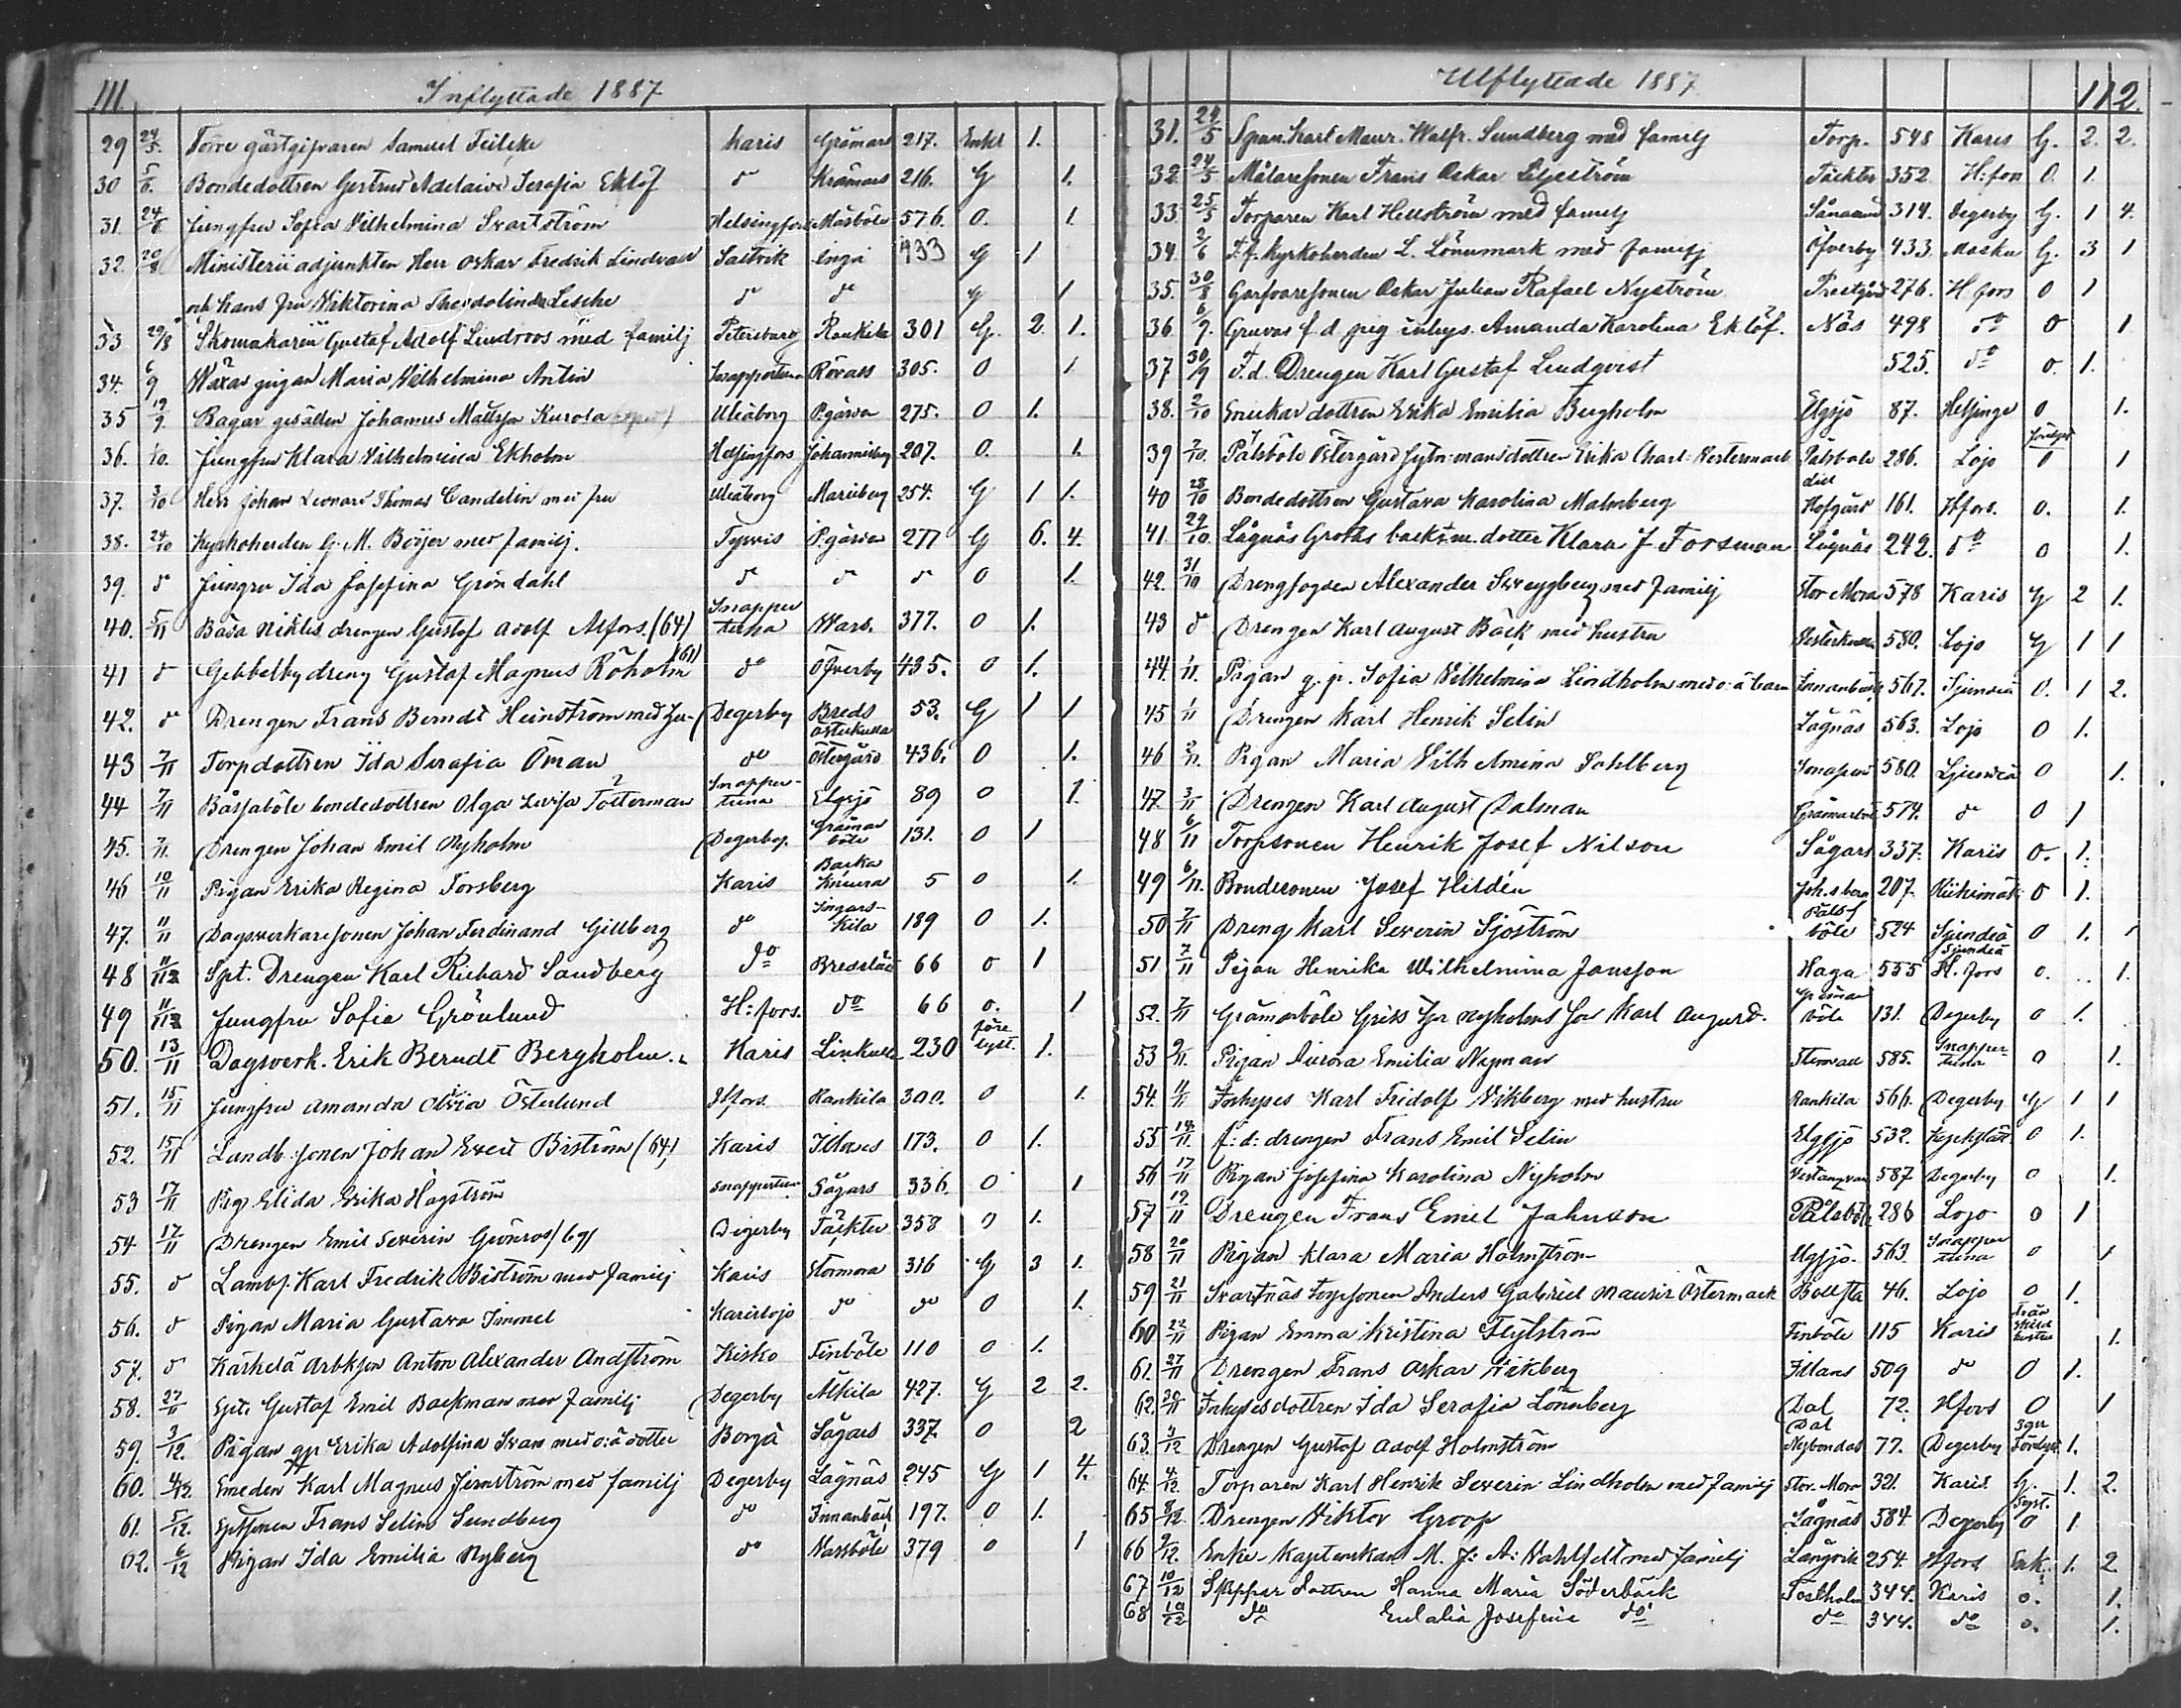 111 Inflyttade 1887
29 24/5 Förre gästgifvaren Samuel Karis Gråmars 217. Enkl 1.
30 5/6. Bondedottren Gertrud Adelaide Serafia Eklöf do Krämars 216. G 1.
31. 24/6 Jungfru Sofia Wilhelmina Svartström Helsingfors Måsböle 576. O. 1.
32. 20/8 Ministerii adjunkten Herr Oskar Fredrik Lindvall Saltvik Inga 933 G 1
och hans fru Wiktorina Theodolinda Lesche do do G 1
33 29/8 Skomakaren Gustaf Adolf Lindroos med familj Petersburg Rankila 301 G. 2 1.
34. 6/9 pigan Maria Wilhelmina Antin Snappertuna Rövass 305. O 1
35 19/9 Bagar gesällen Johannes Mattsson Kurola Uleåborg P.gården 275. O 1.
36. 1/10. Jungfru Klara Wilhelmina Ekholm Helsingfors Johannisberg 207. O. 1.
37. 3/10 Herr Johan Leonard Thomas Candelin med fru Uleåborg Marieberg 254. G 1 1.
38. 24/10 Kyrkoherden G. M. Böijer med familj. Tyrvis P.gården 277 G 6. 4.
39. do Jungru Ida Josefina Gröndahl do do do O 1.
40. 5/11 Båsa Niklis drengen Gustaf Adolf Alfors. (64) Snappertuna Wars. 377. O 1.
41 do Gebbelby dreng Gustaf Magnus Röholm (61) do Öfverby 435. O 1.
42. do Drengen Frans Berndt Heinström med Degerby Breds Österkulla 53. G 1 1
43 7/11 Torpdottren Ida Serafia Öman do Östergård 436. O 1.
44 7/11 Båssaböle bondedottren Olga Lovisa Totterman Snappertuna Elgsjö 89 O 1.
45. 7/11. Drengen Johan Emil Nyholm Degerby. Gråmarböle 131. O 1
46 10/11 Pigan Erika Regina Forsberg Karis Backa Knivura 5 O 1.
47. 11/11 Dagsverkaresonen Johan Ferdinand Gillberg do Ingarskila 189 O 1.
48 11/11 Spt. Drengen Karl Richard Sandberg do Bredslätt 66 O 1
49 11/11 Jungfru Sofia Grönlund H:fors. do 66 O. 1
50. 13/11 Dagsverk. Erik Berndt Bergholm Karis Linkulla 230 1.
51. 15/11 Jungfru Amanda Olivia Österlund H:fors. Rankila 300. O 1.
52. 15/11 Landb. sonen Johan Evert Biström (64) Karis Idanäs 173. O 1.
53 17/11 Pig Elida Erika Hagström Snappertuna Sågars 336. O 1
54 17/11 Drengen Emil Severin Grönroos (69) Degerby Täckter 358 O 1.
55. do Lambf. Karl Fredrik Biström med familj Karis Stormora 316 G 3 1.
56. do Pigan Maria Gustava Immel Karislojo do do O 1.
57. do Kärkelä arbkson Anton Alexander Andström Kisko Finböle 110 O 1.
58. 27/11 Gustaf Emil Backman med familj Degerby Älkila 427. G 2 2.
59. 3/12. Pigan gp Erika Adolfina Svan med o:ä dotter Borgå Sågars 337. O 2
60. 4/12. Smeden Karl Magnus Jernström med familj Degerby Lågnäs 245 G 1 4.
61. 5/12. Frans Selim Sundberg do Innanbäck 197. O 1.
62. 6/12 Pigan Ida Emilia Nyberg do Vassböle 379 O 1
Utflyttade 1887 112
31. 24/5 Karl Maur. Walfr. Sundberg med familj Torp. 548 Karis G. 2. 2.
32. 24/5 Målaresonen Frans Oskar Liljeström Täckter 352 H:fors O. 1.
33. 25/5 Torparen Karl Hellström med familj 314. Degerby G. 1 4.
34. 2/6 T.f. Kyrkoherden L. Lönnmark med familj Öfverby 433. Masku G. 3 1
35. 30/8 Garfvaresonen Oskar Julian Rafael Nyström Prestgård 276. H.fors O 1
36. 6/9. Gruvas f.d. pig inhys. Amanda Karolina Eklöf. Näs 498 do O 1
37 30/9 F.d. Drengen Karl Gustaf Lindqvist 525. do O. 1.
38. 2/10 dottren Erika Emilia Bergholm Elgsjö 87. Helsinge O 1.
39 7/10. Pålsböle Östergård sytn:mansdottren Erika Charl. Westermark Pålsböle 286. Lojo O 1
40 28/10 Bondedottren Gustava Karolina Malmberg Hofgård 161. Hfors. O. 1.
41 29/10. Lågnäs Grotas backst:m. dotter Klara J. Forsman Lågnäs 242. do O 1.
42. 31/10 Drengfogden Alexander med familj Stor Mora 578 Karis G 2 1.
43 do Drengen Karl August Bäck med hustru Westerkulla 580. Lojo G 1 1
44. 1/11. Pigan g.p. Sofia Wilhelmina Lindholm med o:ä barn Innanbäck 567. Sjundeå O. 1 2.
45 1/11 Drengen Karl Henrik Selin Lågnäs 563. Lojo O 1.
46 2/11. Pigan Maria Wilhelmina Sahlberg 580. Sjundeå O 1.
47. 3/11 Drengen Karl August Dalman Gråmarböle 574. do O 1
48 6/11 Torpsonen Henrik Josef Nilson Sågars 337. Karis O. 1.
49 6/11. Bondesonen Josef Hildén Joh.sberg 207. Riihimäki O 1.
50 7/11 Dreng Karl Severin Sjöström Pålsböle 524 Sjundeå O 1.
51 7/11 Pigan Henrika Wilhelmina Jansson Haga 555 Sjundeå H.fors O. 1.
52. 7/11 Gråmarböle Griss Nyholms son Karl August. Gråmarböle 131. Degerby O 1.
53 9/11. Pigan Aurora Emilia Nyman 585. Snappertuna O 1.
54. 11/11 Inhyses Karl Fridolf Wikberg med hustru Rankila 566. Degerby G 1 1
55 14/11. f:d: drengen Frans Emil Selin Elgsjö 532. Kyrkslätt O 1.
56 17/11 Pigan Josefina Karolina Nyholm Vestanqvarn 587 Degerby O 1.
57 19/11 Drengen Frans Emil Jahnson Pålsböle 286 Lojo O 1
58 20/11 Pigan Klara Maria Holmström Elgsjö. 563. Snappertuna O 1
59 21/11 Svartnäs torpsonen Anders Gabriel Mauriz Östermark Bollsta 46. Lojo O 1.
60 22/11 Pigan Emma Kristina Flytström Finböle 115 Karis Frånskild hustru 1.
61. 27/11 Drengen Frans Oskar Wikberg Idlans 509 do O 1.
62. 30/11 Inhysesdottren Ida Serafia Lönnberg Dal 72. Hfors O 1
63. 3/12 Drengen Gustaf Adolf Holmström Dal Nybondas 77. Degerby 1.
64. 4/12. Torparen Karl Henrik Severin Lindholm med familj Stor. Mora 321. Karis. G. 1. 2.
65 8/12 Drengen Viktor Groop Lågnäs 584. Degerby O 1
66 9/12. Enke-Kaptenskan M. J: A: Wahlfelt med familj Långvik 254. Hfors Enk. 1. 2
67 10/12 dottren Hanna Maria Söderbäck Fostholm 344. Karis O. 1.
68 10/12 do Eulalia Josefina do do 344. do O. 1.